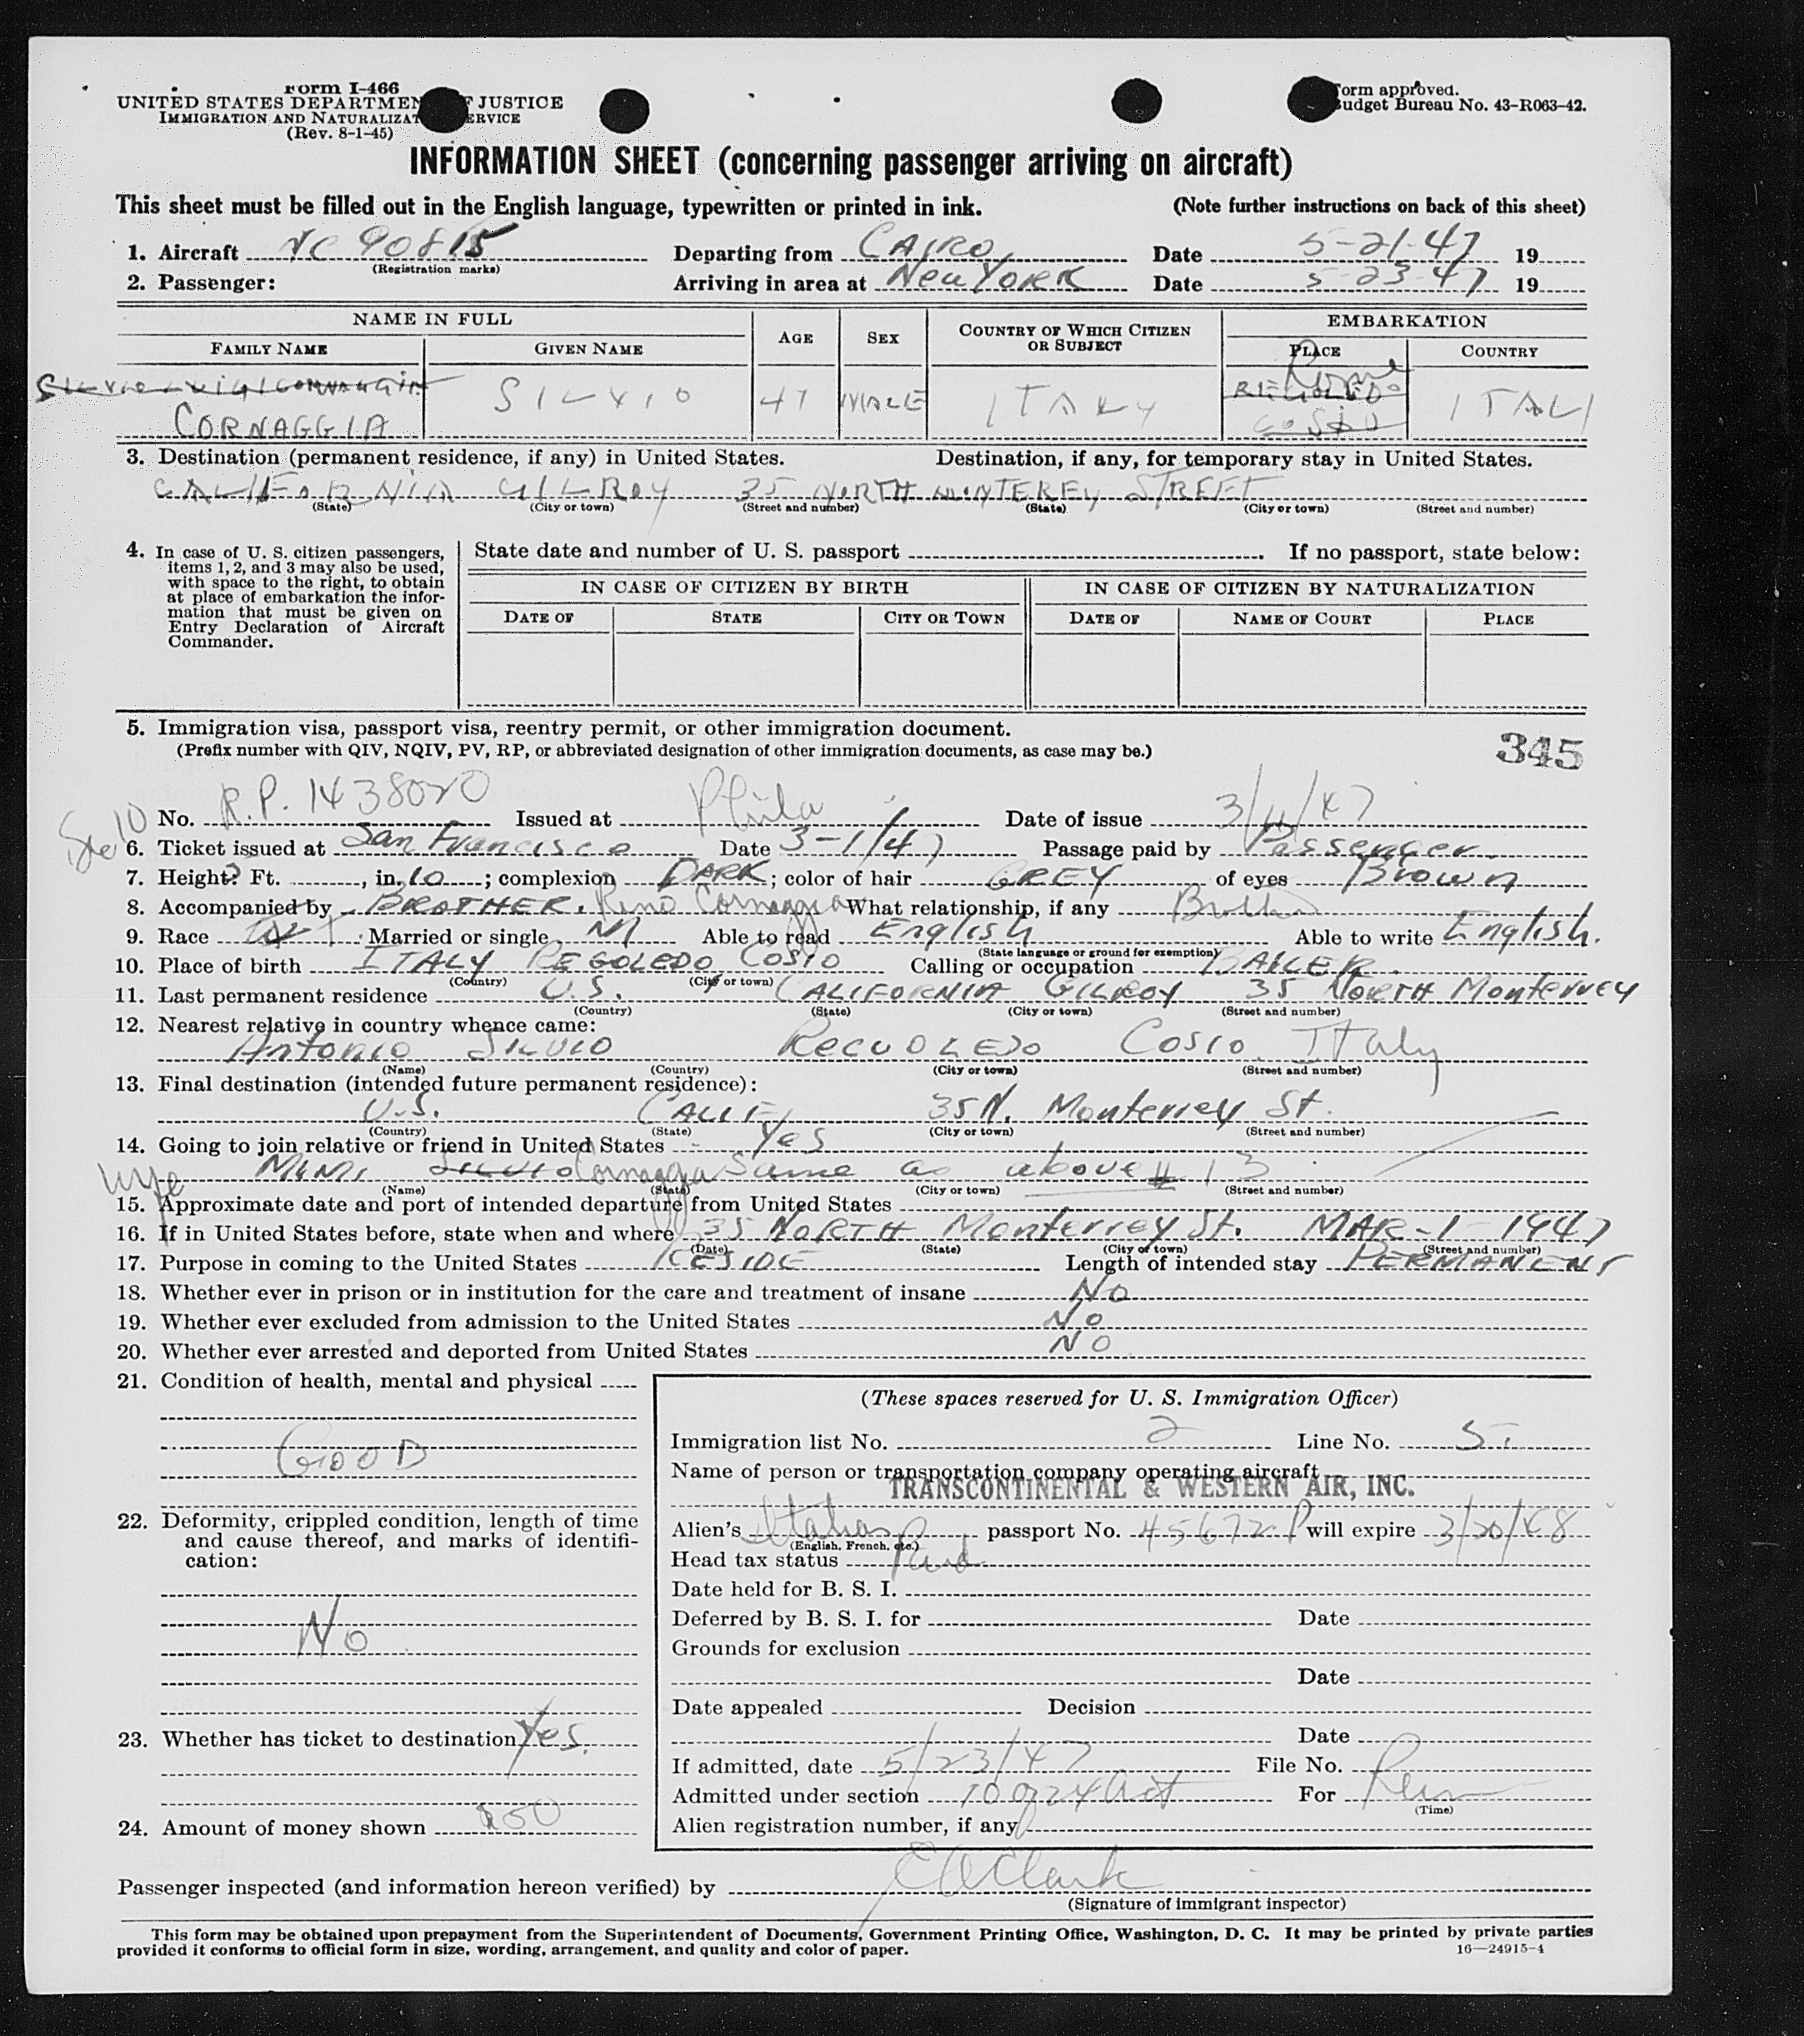 Form I-466
UNITED STATES DEPARTMENT OF JUSTICE
IMMIGRATION AND NATURALIZATION SERVICE
(Rev. 8-1-45)
Form approved.
Budget Bureau No. 43-R063-42.
INFORMATION SHEET (concerning passenger arriving on aircraft)
This sheet must be filled out in the English language, typewritten or printed in ink. (Note further instructions on back of this sheet)
1. Aircraft NC 90815 Departing from CAIRO Date 5-21-47 19
(Registration marks)
2. Passenger: Arriving in area at New YORK Date 5-23-47 19
NAME IN FULL AGE SEX COUNTRY OF WHICH CITIZEN OR SUBJECT EMBARKATION
FAMILY NAME GIVEN NAME PLACE COUNTRY
Rome
CORNAGGIA SILVIO 47 MALE ITALY REGOLEDO COSIO ITALI
3. Destination (permanent residence, if any) in United States. Destination, if any, for temporary stay in United States.
CALIFORNIA GILROY 35 NORTH MONTEREY STREET
(State) (City or town) (Street and number) (State) (City or town) (Street and number)
4. In case of U. S. citizen passengers, items 1, 2, and 3 may also be used, with space to the right, to obtain at place of embarkation the information that must be given on Entry Declaration of Aircraft Commander.
State date and number of U. S. passport . If no passport, state below:
IN CASE OF CITIZEN BY BIRTH IN CASE OF CITIZEN BY NATURALIZATION
DATE OF STATE CITY OR TOWN DATE OF NAME OF COURT PLACE
5. Immigration visa, passport visa, reentry permit, or other immigration document.
(Prefix number with QIV, NQIV, PV, RP, or abbreviated designation of other immigration documents, as case may be.)
345
No. R.P. 1438020 Issued at Phila Date of issue 3/11/47
See 10
6. Ticket issued at San Francisco Date 3-1/47 Passage paid by Passenger.
7. Height? Ft. , in. 10 ; complexion DARK ; color of hair GREY of eyes Brown
8. Accompanied by BROTHER. Remo Cornaggia What relationship, if any Brother
9. Race Married or single M Able to read English Able to write English.
(State language or ground for exemption)
10. Place of birth ITALY REGOLEDO COSIO Calling or occupation BAILER.
(Country) (City or town)
11. Last permanent residence U.S. CALIFORNIA GILROY 35 NORTH Monterrey
(Country) (State) (City or town) (Street and number)
12. Nearest relative in country whence came:
Antonio SILVIO RECUOLEDO COSIO Italy
(Name) (Country) (City or town) (Street and number)
13. Final destination (intended future permanent residence):
U.S. CALIF, 35 N. Monterrey St.
(Country) (State) (City or town) (Street and number)
14. Going to join relative or friend in United States Yes
wife MiMi SILVIO Cornaggia Same as above # 13
(Name) (State) (City or town) (Street and number)
15. Approximate date and port of intended departure from United States
16. If in United States before, state when and where 35 NORTH Monterrey St. MAR-1-1947
(Date) (State) (City or town) (Street and number)
17. Purpose in coming to the United States RESIDE Length of intended stay PERMANENT
18. Whether ever in prison or in institution for the care and treatment of insane No
19. Whether ever excluded from admission to the United States No
20. Whether ever arrested and deported from United States NO
21. Condition of health, mental and physical
GOOD
22. Deformity, crippled condition, length of time and cause thereof, and marks of identification:
No
23. Whether has ticket to destination Yes.
24. Amount of money shown 50
(These spaces reserved for U. S. Immigration Officer)
Immigration list No. 2 Line No. 5
Name of person or transportation company operating aircraft
TRANSCONTINENTAL & WESTERN AIR, INC.
Alien's Italian passport No. 45672 P will expire 3/20/48
(English, French, etc.)
Head tax status Paid
Date held for B. S. I.
Deferred by B. S. I. for Date
Grounds for exclusion
Date
Date appealed Decision
Date
If admitted, date 5/23/47 File No.
Admitted under section 10 of 24 Act For Perm
(Time)
Alien registration number, if any
Passenger inspected (and information hereon verified) by E A Clark
(Signature of immigrant inspector)
This form may be obtained upon prepayment from the Superintendent of Documents, Government Printing Office, Washington, D. C. It may be printed by private parties
provided it conforms to official form in size, wording, arrangement, and quality and color of paper. 16—24915-4